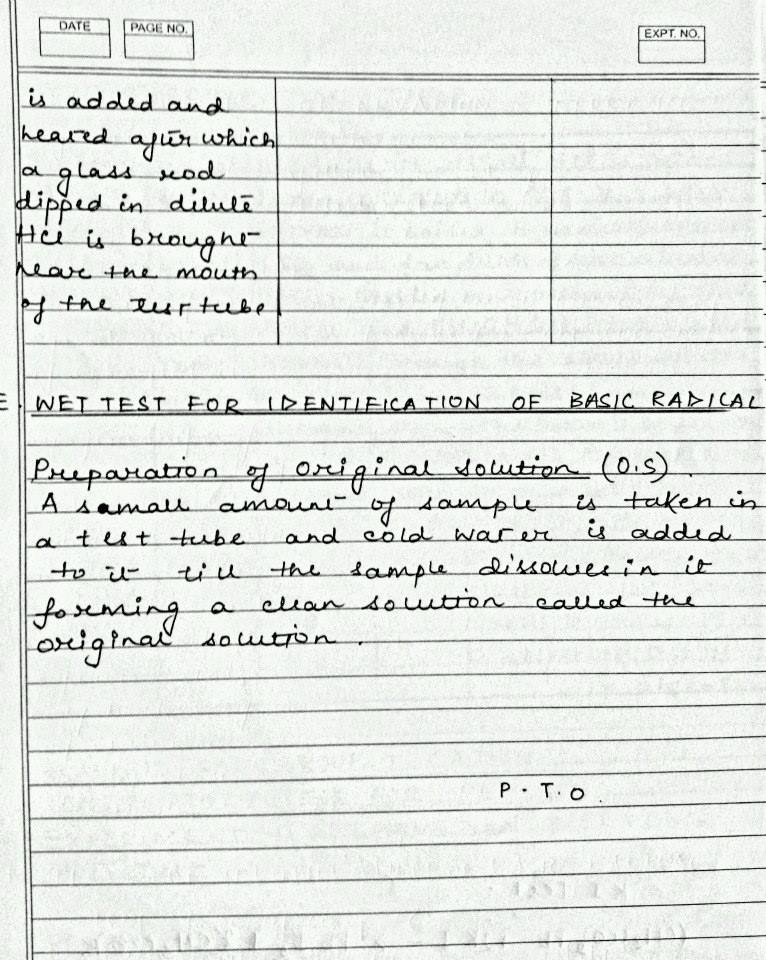 DATE
PAGE NO.
EXPT. NO.
is added and
heated after which
a glass rod
dipped in dilute
Hcl is brought
near the mouth
of the test tube
E. WET TEST FOR IDENTIFICATION OF BASIC RADICAL
Preparation of original solution (O.S)
A samall amount of sample is taken in
a test tube and cold water is added
to it till the sample dissolves in it
forming a clean solution called the
original solution.
P.T.O.